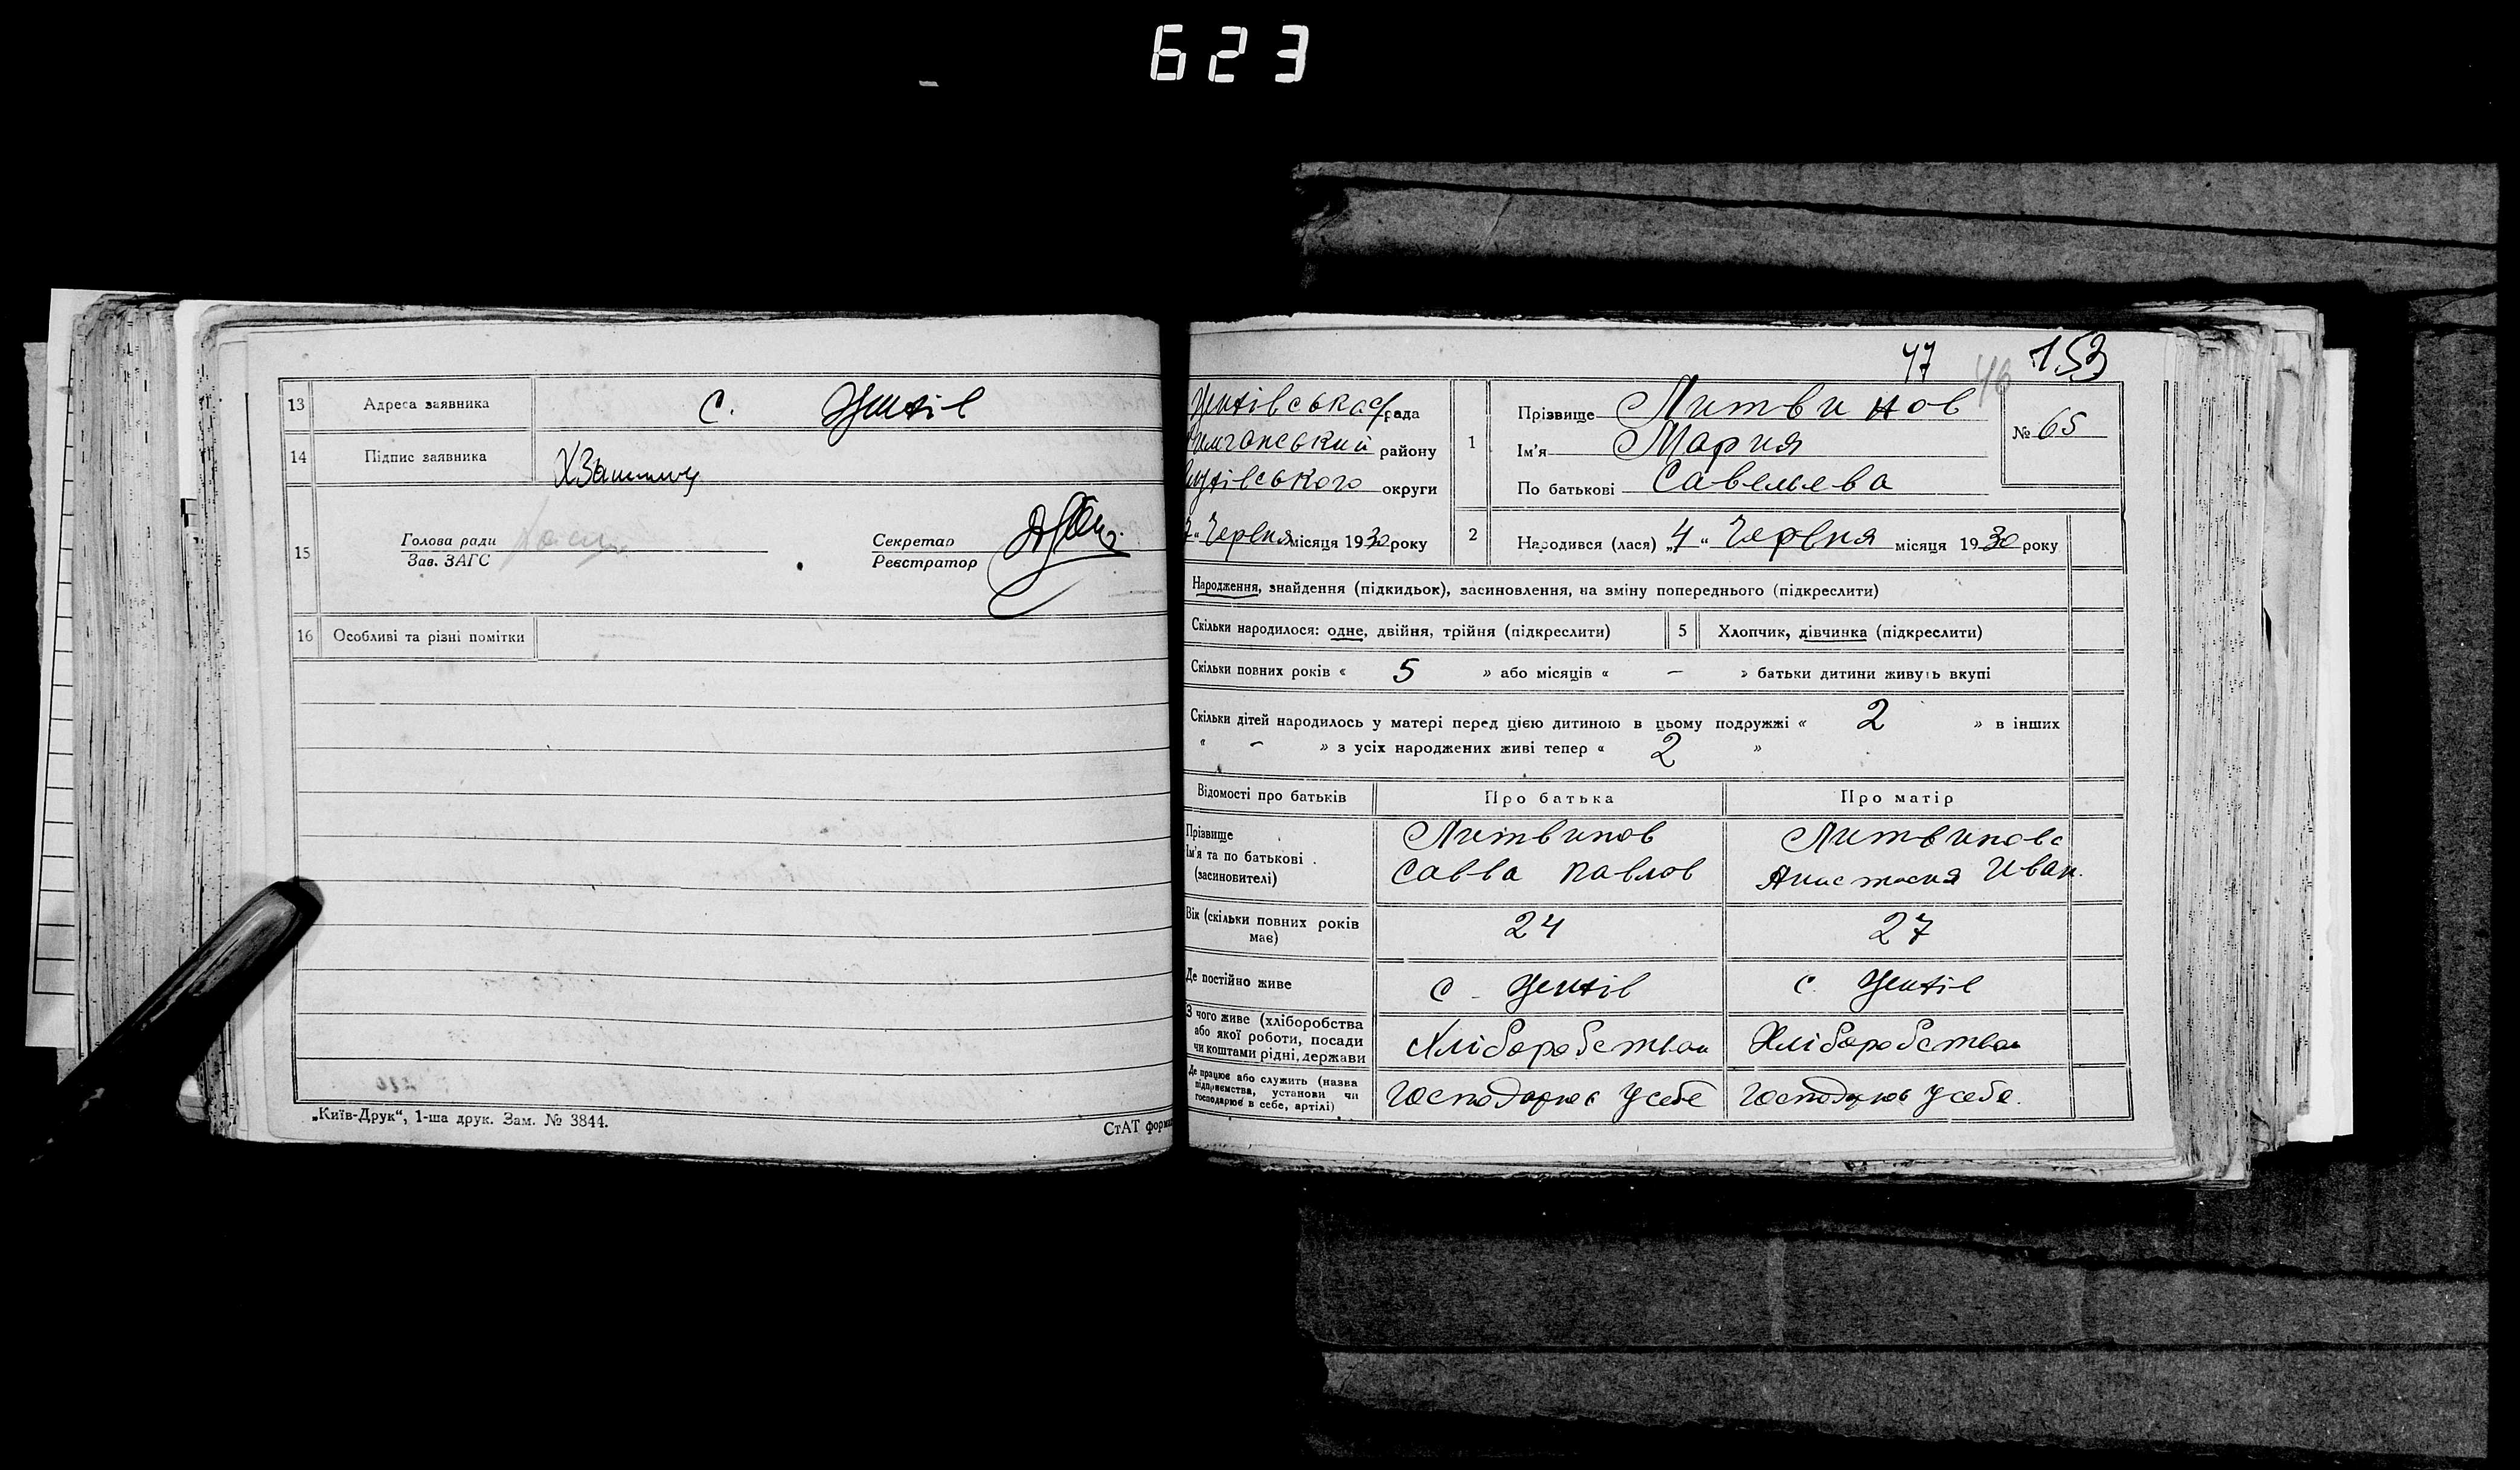 623
13 Адреса заявника с.
14 Підпис заявника
15 Голова ради
Зав. ЗАГС
Секретар
Реєстратор
16 Особливі та різні помітки
„Київ-Друк“, 1-ша друк. Зам. № 3844.
СтАТ
47 46 153
рада
району
округи
„ Червня місяця 1930 року
1 Прізвище Литвинов
Ім'я Мария
По батькові Савельева
№ 65
2 Народився (лася) „4“ Червня місяця 1930 року
Народження, знайдення (підкидьок), засиновлення, на зміну попереднього (підкреслити)
Скільки народилося: одне, двійня, трійня (підкреслити) 5 Хлопчик, дівчинка (підкреслити)
Скільки повних років « 5 » або місяців « – » батьки дитини живуть вкупі
Скільки дітей народилось у матері перед цією дитиною в цьому подружжі « 2 » в інших
« – » з усіх народжених живі тепер « 2 »
Відомості про батьків Про батька Про матір
Прізвище Литвинов Литвинова
Ім'я та по батькові Савва Павлов Анастасия Иван.
(засиновителі)
Вік (скільки повних років має) 24 27
Де постійно живе с. с.
З чого живе (хліборобства
або якої роботи, посади
чи коштами рідні, держави Хліборобства Хліборобства
Де працює або служить (назва
підприємства, установи чи
господарює в себе, артілі) господарює у себе господарює у себе.